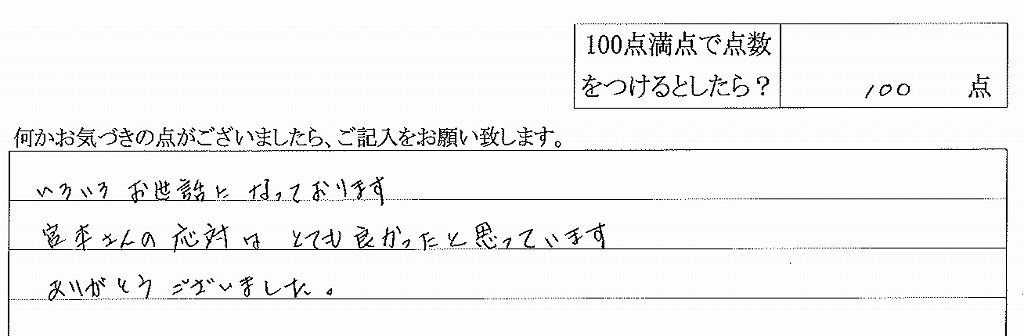 100点満点で点数
をつけるとしたら？
100 点
何かお気づきの点がございましたら、ご記入をお願い致します。
いろいろお世話になっております
宮本さんの応対は とても良かったと思っています
ありがとうございました。